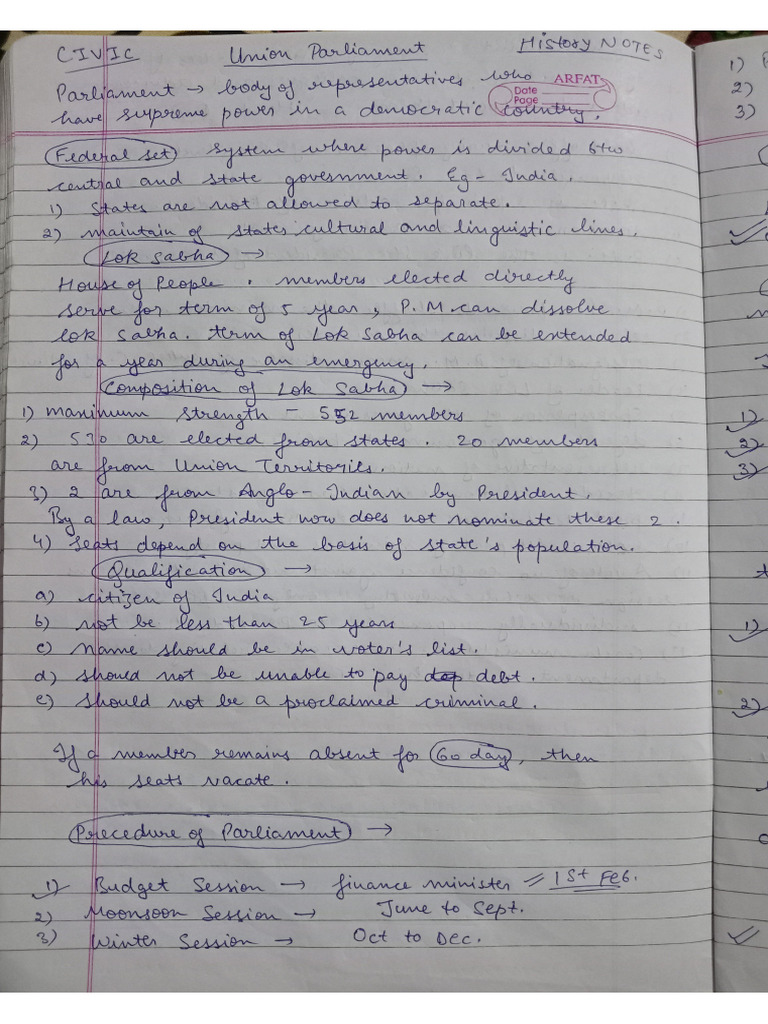 CIVIC Union Parliament History NOTES
Parliament → body of representatives who
ARFAT
Date
Page
have supreme power in a democratic country.
Federal set system where power is divided btw
central and state government. Eg - India.
1) States are not allowed to separate.
2) maintain of states cultural and linguistic lines.
Lok Sabha →
House of People. members elected directly
serve for term of 5 year, P.M. can dissolve
lok sabha. term of Lok Sabha can be extended
for a year during an emergency.
Composition of Lok Sabha →
1) maximum strength - 552 members
2) 530 are elected from states. 20 members
are from Union Territories.
3) 2 are from Anglo-Indian by President.
By a law, President now does not nominate these 2.
4) seats depend on the basis of state's population.
Qualification →
a) citizen of India
b) not be less than 25 years
c) name should be in voter's list.
d) should not be unable to pay debt.
e) should not be a proclaimed criminal.
If a member remains absent for 60 day, then
his seats vacate.
Precedure of Parliament →
1) Budget Session → finance minister = 1st Feb.
2) Moonsoon Session → June to Sept.
3) Winter Session → Oct to Dec.
1)
2)
3)
1)
2)
3)
1)
2)